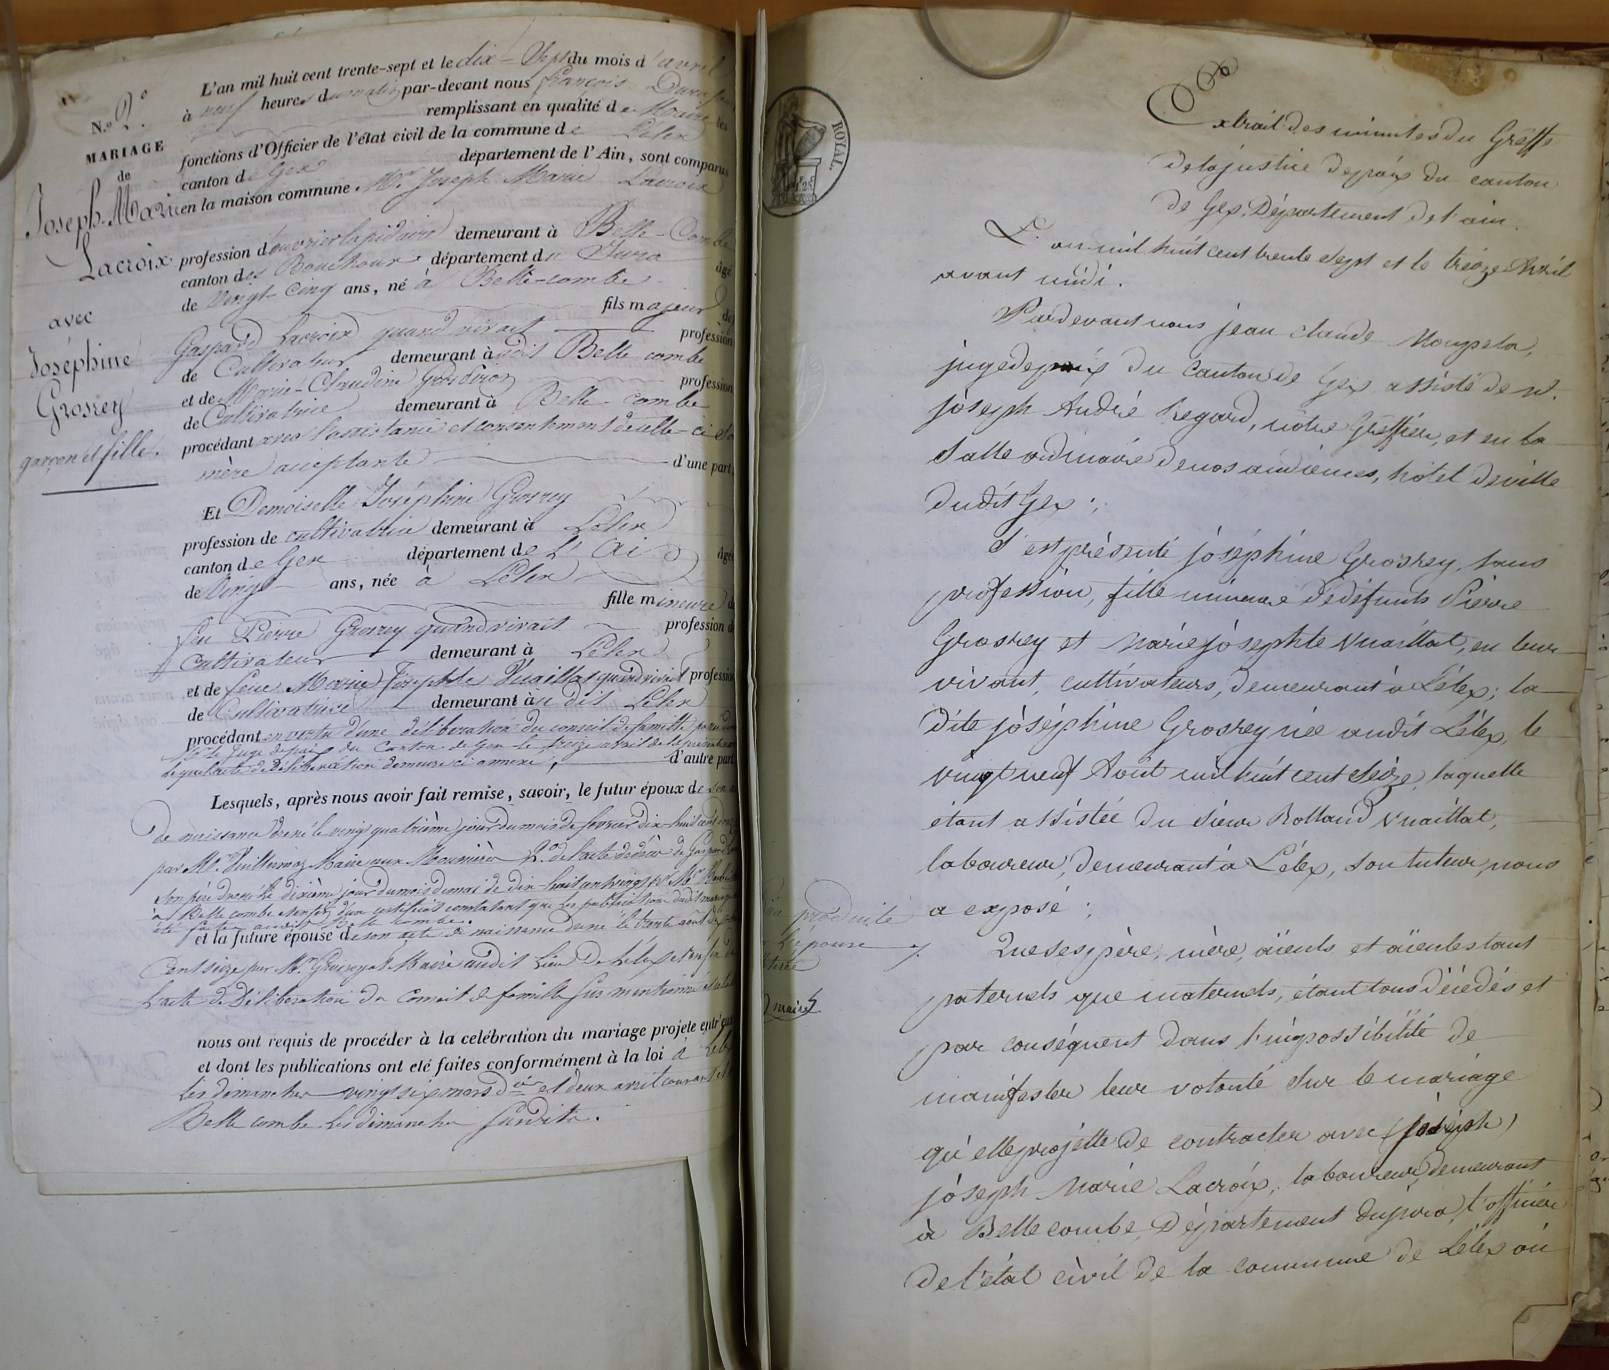 N.o 2.e
MARIAGE
de
Joseph-Marie
Lacroix
avec
Joséphine
Grosrey
garçon et fille.
L'an mil huit cent trente-sept et le dix-Sept du mois d'avril
à neuf heures du matin par-devant nous françois
remplissant en qualité de Maire les
fonctions d'Officier de l'état civil de la commune de Lelex
canton de Gex département de l'Ain, sont comparus
en la maison commune. Mr. Joseph Marie Lacroix
profession d'ouvrier lapidaire demeurant à Belle-Combe
canton des Bouchoux département du Jura âgé
de Vingt-Cinq ans, né à Belle-combe
fils majeur de
Gaspard Lacroix quand vivait profession
de Cultivateur demeurant à dit Belle combe
et de Marie-Claudine profession
de Cultivatrice demeurant à Belle-combe
procédant avec l'assistance et consentement de celle-ci sa
mère acceptante d'une part
Et Demoiselle Joséphine Grosrey
profession de cultivatrice demeurant à Lelex
canton de Gex département de L'Ain âgée
de Vingt ans, née à Lelex
fille mineure de
feu Pierre Grosrey quand vivait profession de
Cultivateur demeurant à Lelex
et de feue Marie Josephte Vuaillat quand vivait profession
de Cultivatrice demeurant à dit Lelex
procédant en vertu d'une délibération du conseil de famille
le Juge de paix du Canton de Gex le treize avril
lequel acte de délibération demeure ci annexé, d'autre part
Lesquels, après nous avoir fait remise, savoir, le futur époux de son
de naissance dressé le vingt quatrième jour du mois de février dix-huit cent
par Mr. Maire aux 2.o de l'acte de décès de Gaspard
son père dressé le dixième jour du mois de mai de dix-huit cent vingt
à Belle combe d'un certificat constatant que les publications dudit mariage
été faites audit Belle combe.
et la future épouse de son acte de naissance dressé le trente août
Cent seize par Mr. Maire audit Lieu De Lelex
L'acte de Délibération du Conseil de famille sus mentionné
nous ont requis de procéder à la celébration du mariage projeté entr'eux
et dont les publications ont été faites conformément à la loi à Lelex
les dimanches vingt six mars der et deux avril courant et
Belle combe les dimanches susdits.
ROYAL
produite
l'épouse
Maire
Extrait des minutes du Greffe
De la justice de paix du canton
de Gex, Département de l'ain.
L'an mil huit cent trente Sept et le treize Avril
avant midi.
Pardevant nous jean claude Mougela,
juge de paix du Canton de Gex assisté de m.
joseph André Regard, notre Greffier, et en la
Salle ordinaire de nos audiences, hôtel de ville
dudit Gex;
S'est présenté joséphine Grosrey, sans
profession, fille mineure De défunts Pierre
Grosrey et Marie josephte Vuaillat, en leur
vivant, cultivateurs, demeurant à Lélex; la
dite joséphine Grosrey née audit Lélex, le
vingt neuf Août mil huit cent seize, laquelle
étant assistée du Sieur Rolland Vuaillat,
laboureur, demeurant à Lélex, son tuteur, nous
a exposé:
Que ses père, mère, aïeuls et aïeules tant
paternels que maternels, étant tous décédés et
par conséquent dans l'impossibilité de
manifester leur volonté sur le mariage
qu'elle projette de contracter avec (joseph)
joseph Marie Lacroix, laboureur, demeurant
à Belle combe, Département du jura, l'officier
de l'état civil de la commune de Lélex où